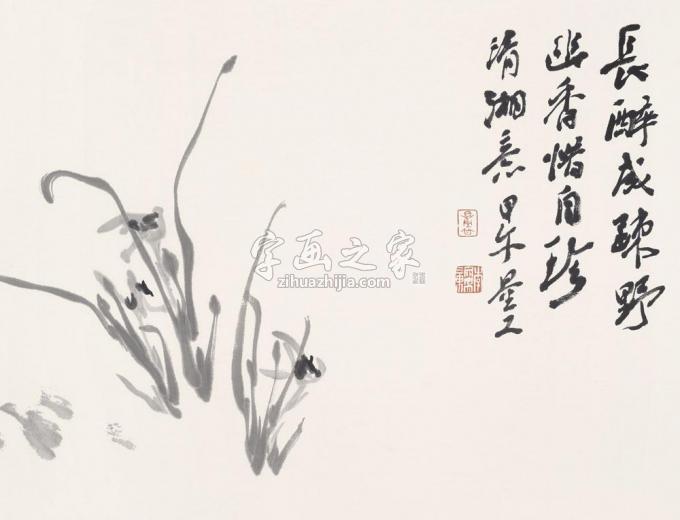 長醉成疎野
幽香惜自珍
清湘意 甲午
字画之家
zihuazhijia.com